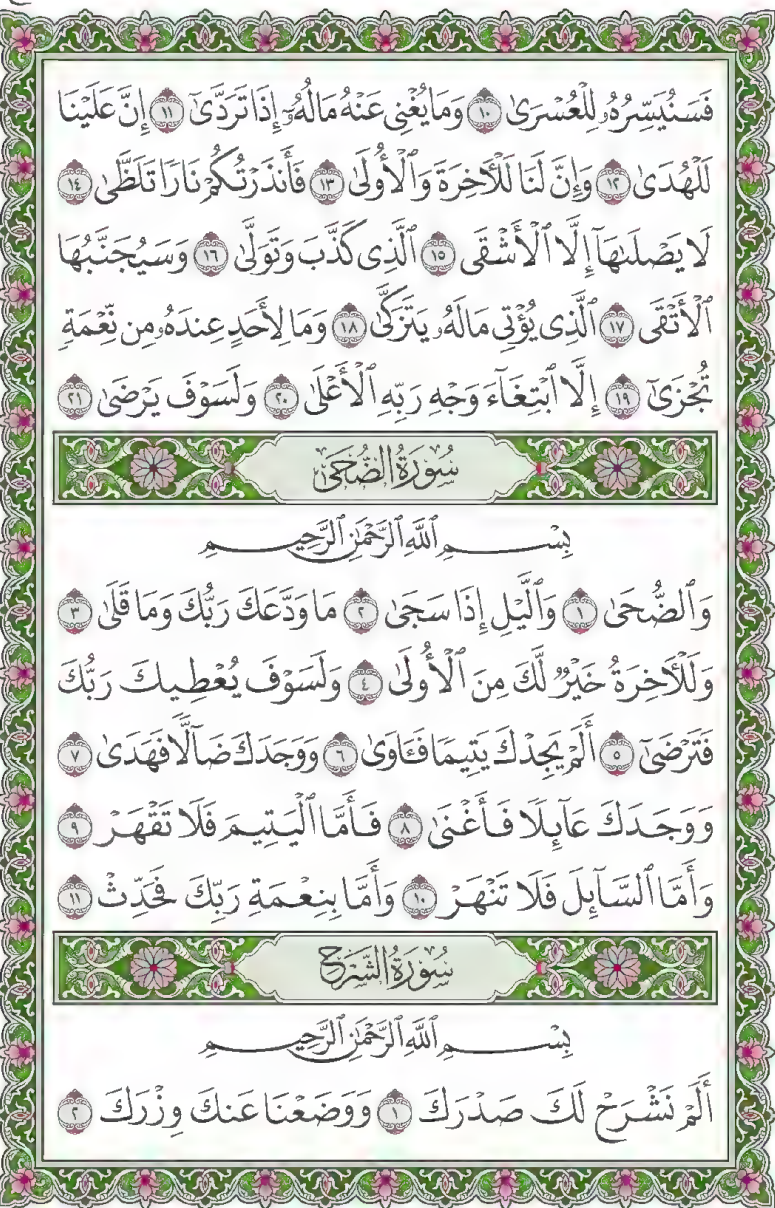 فَسَنُيَسِّرُهُۥ لِلْعُسْرَىٰ ١٠ وَمَا يُغْنِى عَنْهُ مَالُهُۥٓ إِذَا تَرَدَّىٰٓ ١١ إِنَّ عَلَيْنَا
لَلْهُدَىٰ ١٢ وَإِنَّ لَنَا لَلْـَٔاخِرَةَ وَٱلْأُولَىٰ ١٣ فَأَنذَرْتُكُمْ نَارًا تَلَظَّىٰ ١٤
لَا يَصْلَىٰهَآ إِلَّا ٱلْأَشْقَى ١٥ ٱلَّذِى كَذَّبَ وَتَوَلَّىٰ ١٦ وَسَيُجَنَّبُهَا
ٱلْأَتْقَى ١٧ ٱلَّذِى يُؤْتِى مَالَهُۥ يَتَزَكَّىٰ ١٨ وَمَا لِأَحَدٍ عِندَهُۥ مِن نِّعْمَةٍ
تُجْزَىٰٓ ١٩ إِلَّا ٱبْتِغَآءَ وَجْهِ رَبِّهِ ٱلْأَعْلَىٰ ٢٠ وَلَسَوْفَ يَرْضَىٰ ٢١
سُورَةُ الضُّحَىٰ
بِسْمِ ٱللَّهِ ٱلرَّحْمَٰنِ ٱلرَّحِيمِ
وَٱلضُّحَىٰ ١ وَٱلَّيْلِ إِذَا سَجَىٰ ٢ مَا وَدَّعَكَ رَبُّكَ وَمَا قَلَىٰ ٣
وَلَلْـَٔاخِرَةُ خَيْرٌ لَّكَ مِنَ ٱلْأُولَىٰ ٤ وَلَسَوْفَ يُعْطِيكَ رَبُّكَ
فَتَرْضَىٰٓ ٥ أَلَمْ يَجِدْكَ يَتِيمًا فَـَٔاوَىٰ ٦ وَوَجَدَكَ ضَآلًّا فَهَدَىٰ ٧
وَوَجَدَكَ عَآئِلًا فَأَغْنَىٰ ٨ فَأَمَّا ٱلْيَتِيمَ فَلَا تَقْهَرْ ٩
وَأَمَّا ٱلسَّآئِلَ فَلَا تَنْهَرْ ١٠ وَأَمَّا بِنِعْمَةِ رَبِّكَ فَحَدِّثْ ١١
سُورَةُ الشَّرْحِ
بِسْمِ ٱللَّهِ ٱلرَّحْمَٰنِ ٱلرَّحِيمِ
أَلَمْ نَشْرَحْ لَكَ صَدْرَكَ ١ وَوَضَعْنَا عَنكَ وِزْرَكَ ٢